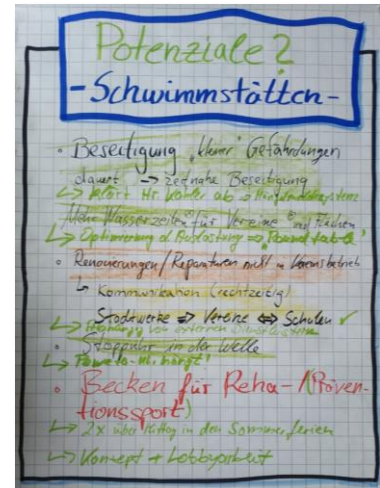 Potenziale?
- Schwimmstätten -
• Beseitigung "kleiner" Gefährdungen
dauert -> zeitnahe Beseitigung
↳ klärt Hr. ab
Mehr Wasserzeiten für Vereine und Flächen
↳ Optimierung d. Auslastung =>
• Renovierungen/Reparaturen nicht in Vereinsbetrieb
↳ Kommunikation (rechtzeitig)
Stadtwerke => Vereine <=> Schulen ✓
↳ von externen
• Stoppuhr in der Welle
↳ hängt!
• Becken für Reha-/(Präven-
tionssport)
↳ 2x über Mittag in den Sommerferien
↳ Konzept + Lobbyarbeit